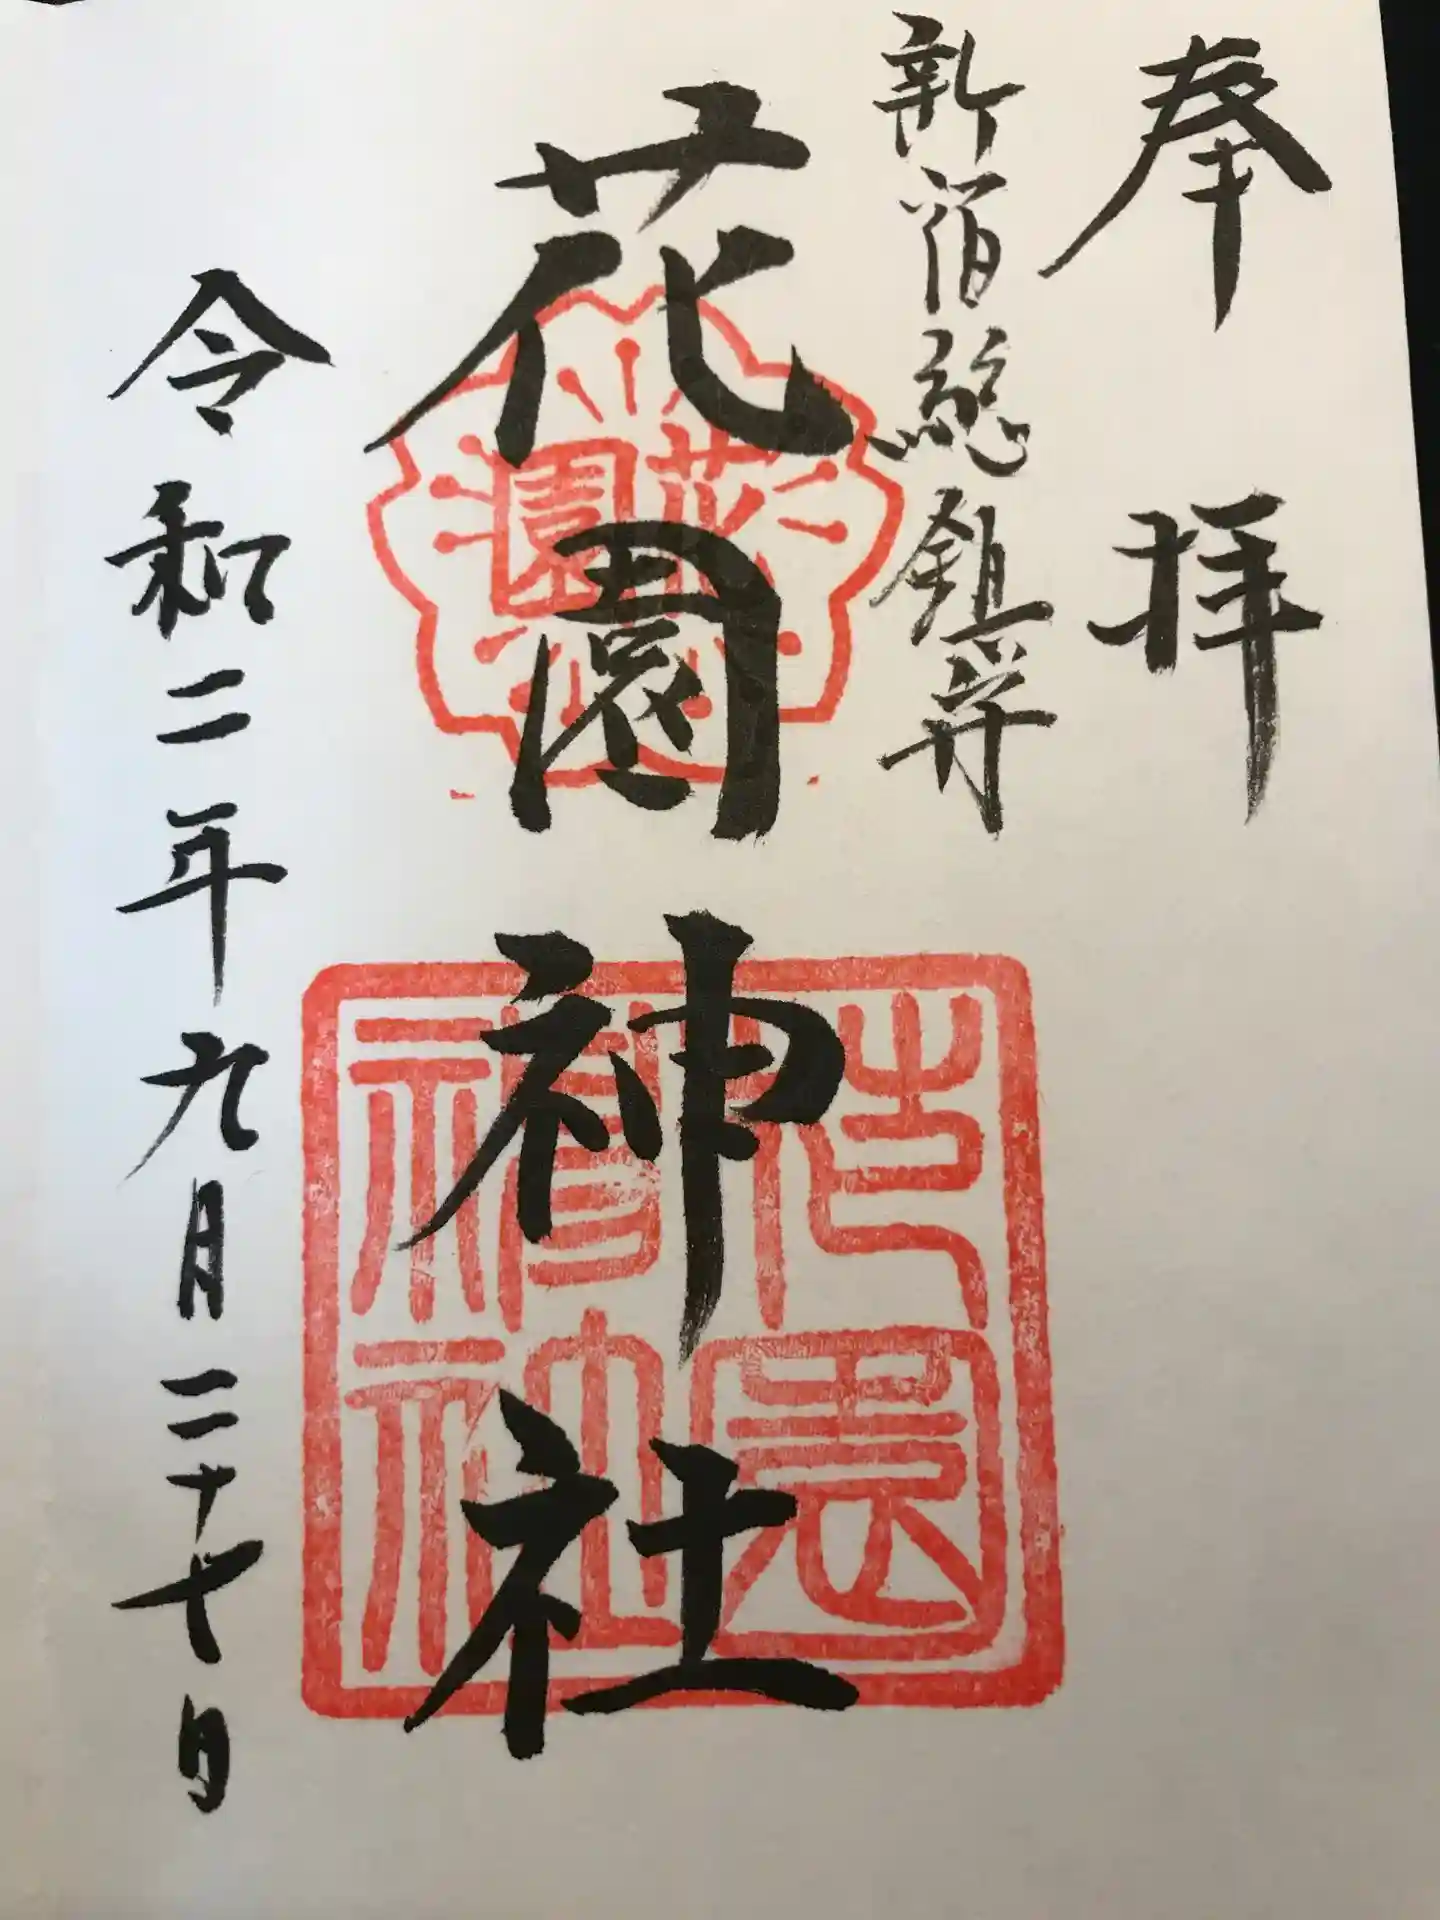 奉拝
新宿総鎮守
花園神社
令和二年九月二十七日
花園
花園神社